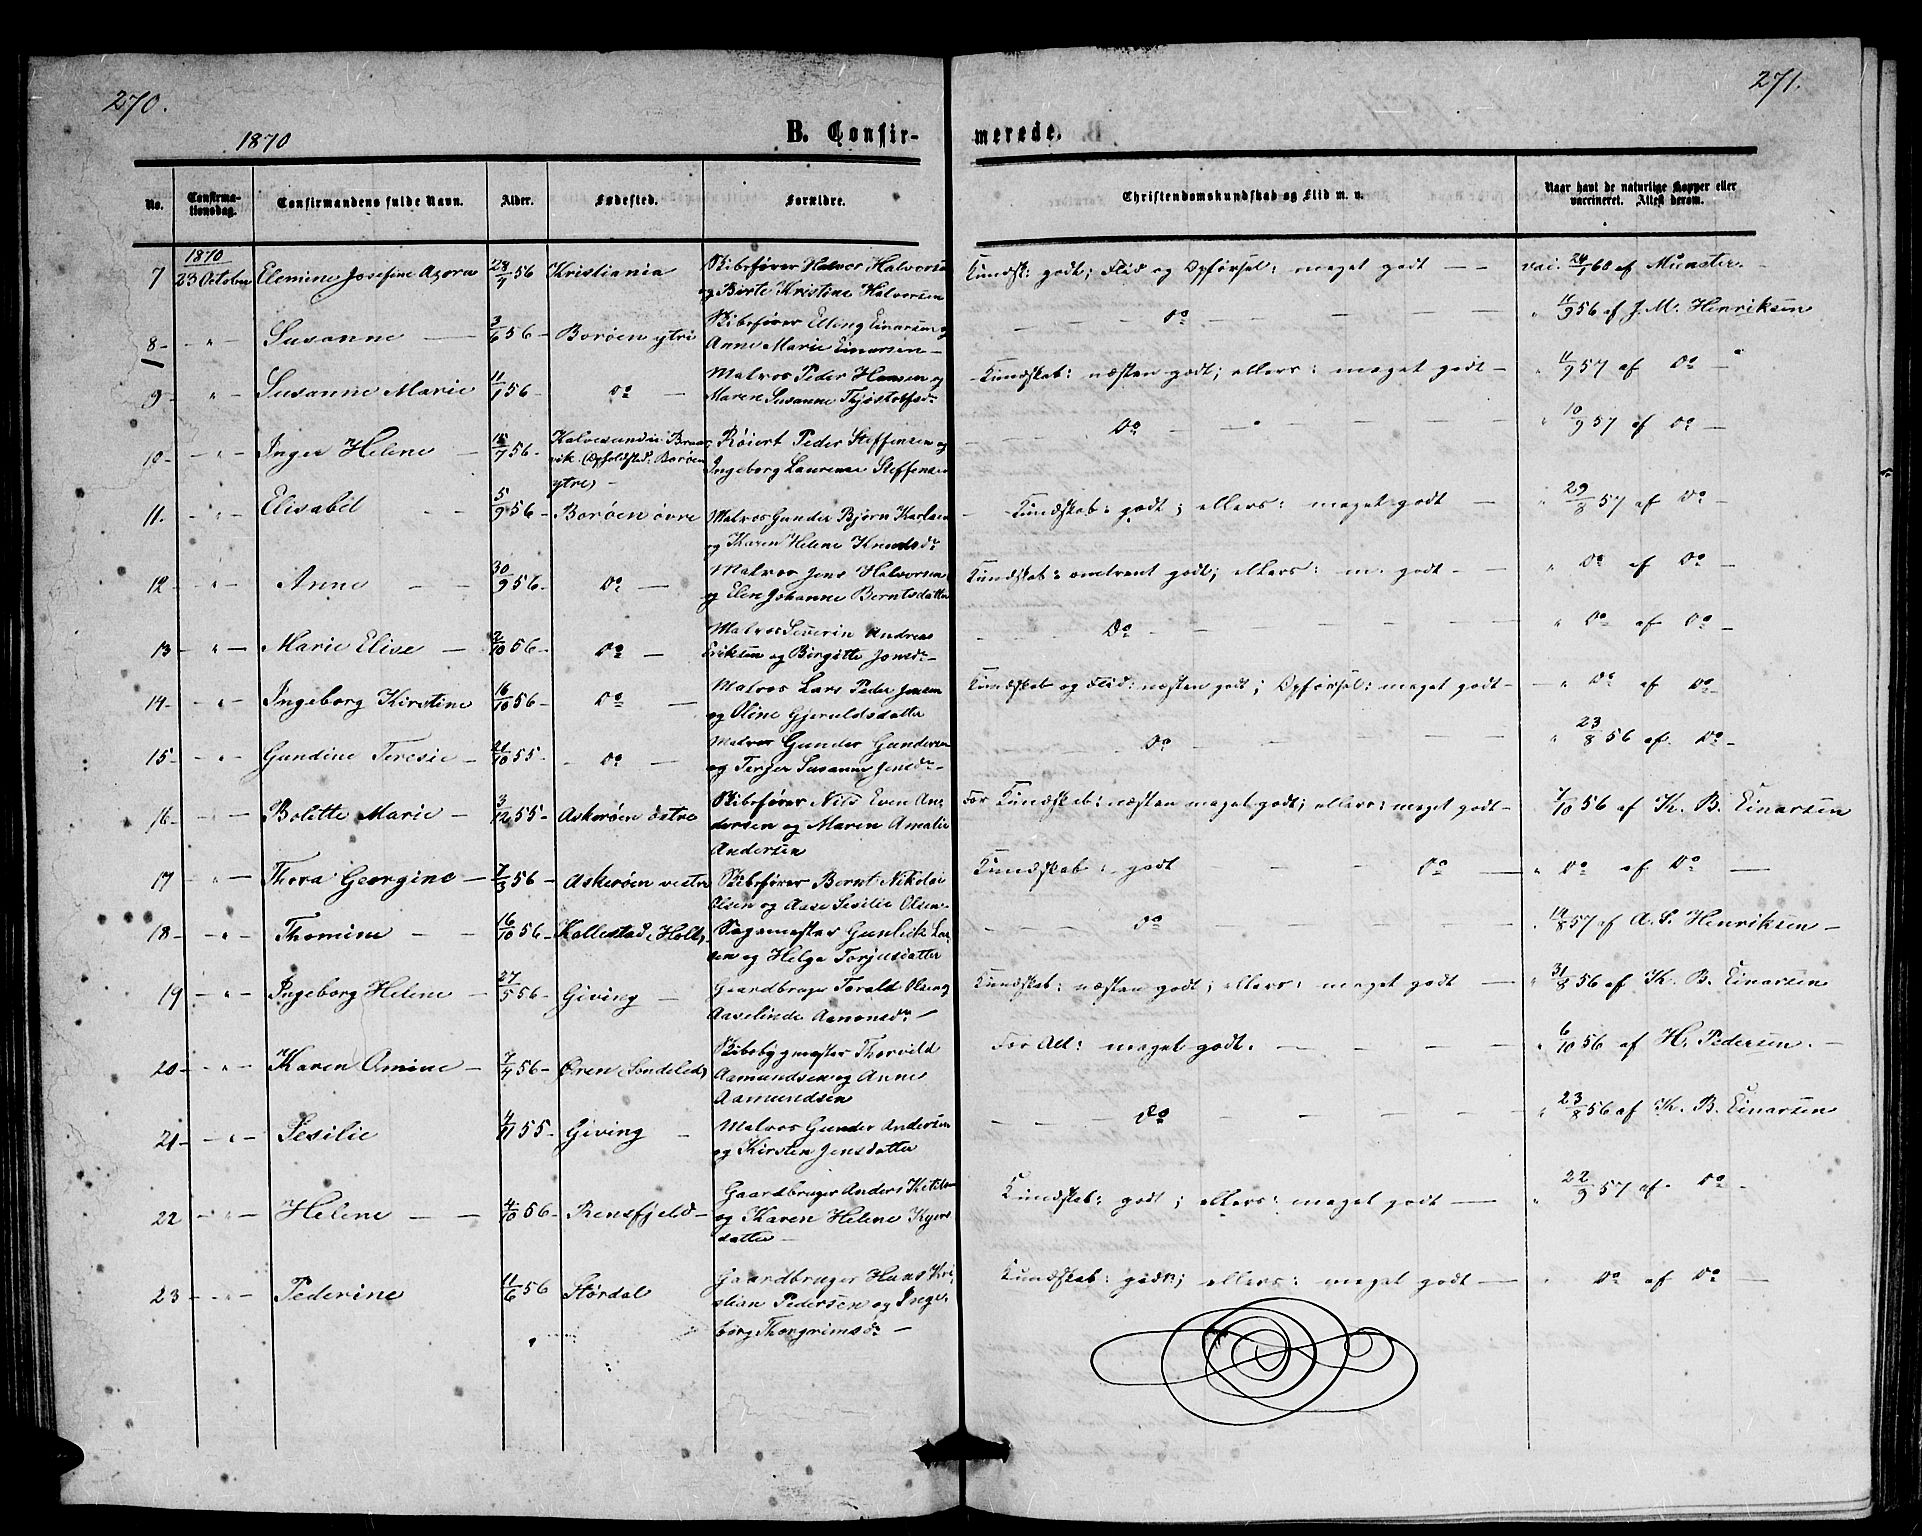 270.
271.
1870
B. Confir-
merede.
No.
Confirma-
tionsdag.
Confirmandens fulde Navn.
Alder.
Fødested.
Forældre.
Christendomskundskab og Flid m. v.
Naar havt de naturlige Kopper eller
vaccineret. Attest derom.
1870
7 23 October Elemine Josefine Azora 28/7 56 Kristiania Skibsfører Halvor Halvorsen
og Birte Kristine Halvorsen
Kundsk: godt; Flid og Opførsel: meget godt — — vac. 24/1 60 af Münster. -
8 - " - Susanne — 3/6 56 - Borøen ytre Skibsfører Elling Einarsen og
Anne Marie Einarsen —
— Do — " 11/9 56 af J. M. Henriksen
9 - " - Susanne Marie 11/1 56 - Do — Matros Peder Hansen og
Maren Susanne Thjøstolfsdr
- Kundskab: næsten godt; ellers: meget godt — " 11/9 57 af Do "
10 - " - Inger Helene — 15/7 56 - Kalvesund i Braas
vik (Opholdssted: Borøen
ytre) -
Røiert Peder Steffensen og
Ingeborg Laurense Steffensen
— Do — " 10/9 57 af Do —
11. - " - Elisabet - - 5/9 56 - Borøen øvre Matros Gunder Bjørn Karlsen
og Karen Helene Knudsdr
- Kundskab: godt; ellers: meget godt — " 29/8 57 af Do —
12 - " - Anne — — 30/9 56 - Do — Matros Jens Halvorsen
og Elen Johanne Berntsdatter
Kundskab: omtrent godt; ellers: m. godt - — " Do af Do —
13 - " - Marie Elise — 2/10 56 - Do — Matros Severin Andreas
Eriksen og Birgitte Jonsdr -
— Do — " Do af Do —
14 - " - Ingeborg Kirstine 16/10 56 - Do — Matros Lars Peder Jensen
og Oline Gjeruldsdatter
Kundskab og Flid: næsten godt; Opførsel: meget godt - — " Do af Do -
15 - " - Gundine Teresie - 21/10 55 - Do — Matros Gunder Gundersen
og Terjer Susanne Jensdr -
— Do — " 23/8 56 af Do -
16 - " - Bolette Marie - 3/12 55 - Askerøen østre Skibsfører Nils Even An-
dersen og Maren Amalie
Andersen
For Kundskab: næsten meget godt; ellers: meget godt - 7/10 56 af K. B. Einarsen
17 - " - Thora Georgine - 7/3 56 - Askerøen vestre Skibsfører Bernt Nikolai
Olsen og Aase Sesilie Olsen -
Kundskab: godt — — Do — " Do af Do —
18 - " - Thomine - - 16/10 56 - Kallestad (Holt) Sagmester Gunleik La-
sen og Helga Torjusdatter
— Do — " 14/8 57 af A. S. Henriksen -
19 - " - Ingeborg Helene - 27/5 56 - Giving - Gaardbruger Torald Olsen og
Aaselinde Aanonsdr -
Kundskab: næsten godt; ellers: meget godt — " 31/8 56 af K. B. Einarsen
20 - " - Karen Omine - 7/4 56 - Øren (Søndeled) Skibsbygmester Thorvild
Aamundsen og Anne
Aamundsen
For Alt: meget godt. — " 6/10 56 af H. Pedersen. -
21 - " - Sesilie 4/11 55 - Giving - Matros Gunder Andersen
og Kirsten Jensdatter
— Do — " 23/8 56 af K. B. Einarsen
22 - " - Helene - - 4/10 56 - Rensfjeld - Gaardbruger Anders Ketilsen
og Karen Helene Kyers
datter -
Kundskab: godt; ellers: meget godt — " 22/9 57 af Do -
23 - " - Pederine 11/6 56 Størdal Gaardbruger Hans Kri-
stian Pedersen og Inge-
borg Thorgrimsdr -
Kundskab: godt; ellers: meget godt — " Do af Do —